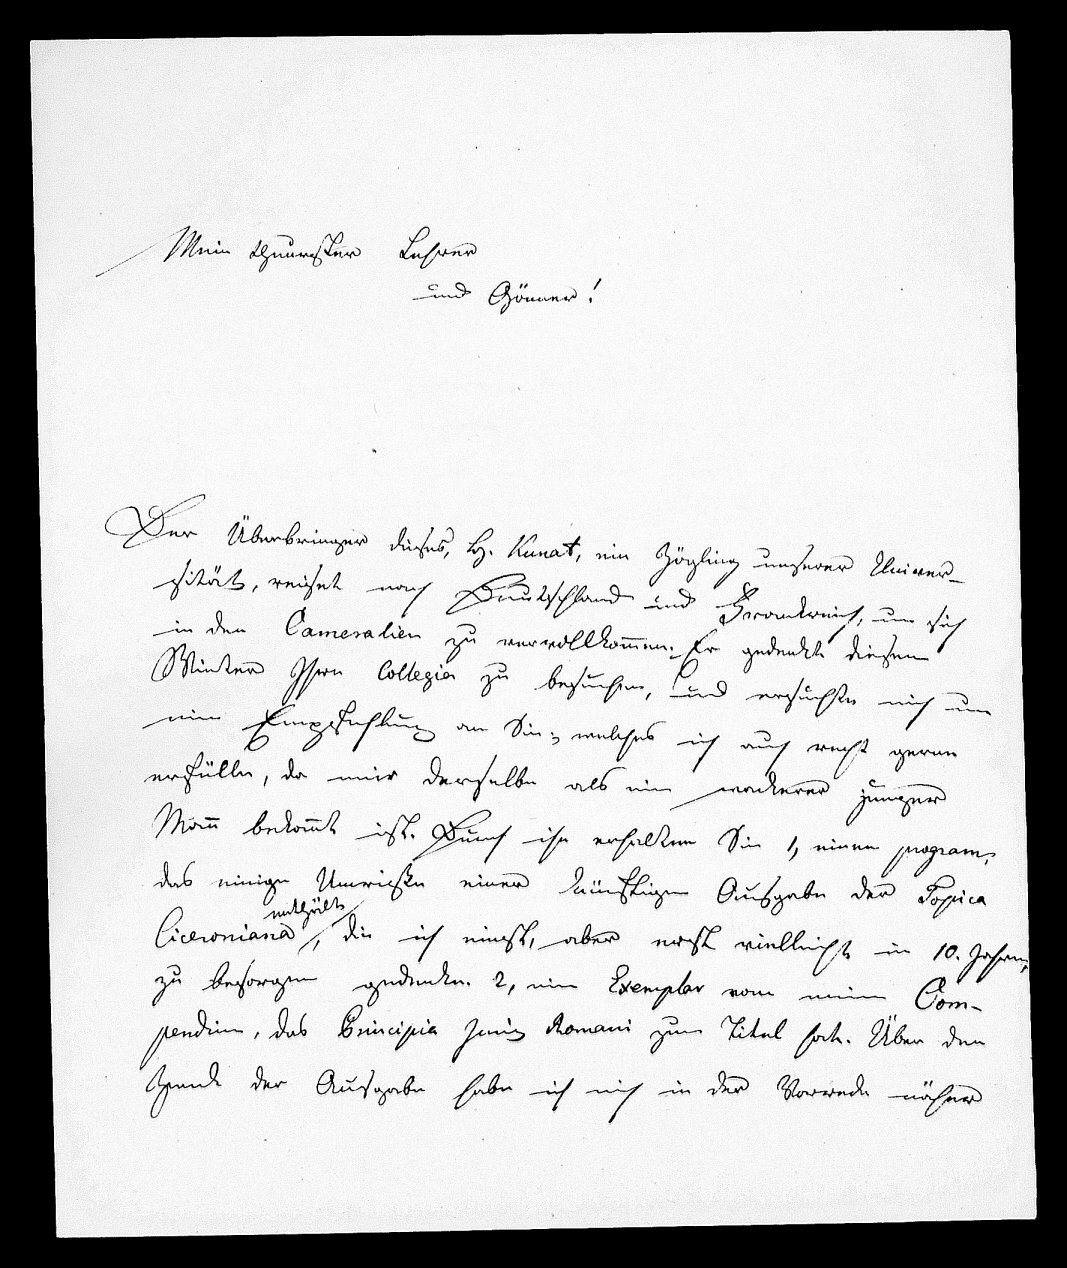 Mein theuerster Lehrer
und Gönner!
Der Überbringer dieses, H. Kunat, ein Zögling unserer Univer-
sität, reiset nach Deutschland und Frankreich, um sich
in den Cameralien zu vervollkom̄en. Er gedenkt diesen
Winter Ihre Collegia zu besuchen, und ersuchte mich um
eine Empfehlung an Sie; welches ich auch recht gerne
erfülle, da mir derselbe als ein wackerer junger
Mañ bekañt ist. Durch ihn erhalten Sie 1, einen program,
das einige Umrisse einer künftigen Ausgabe der Topica
enthält
Ciceroniana, die ich einst, aber erst vielleicht in 10. Jahren,
zu besorgen gedenke. 2, ein Exemplar von meinem Com-
pendium, das Principia Romani zum Titel hat. Über den
Zweck der Ausgabe habe ich mich in der Vorrede näher